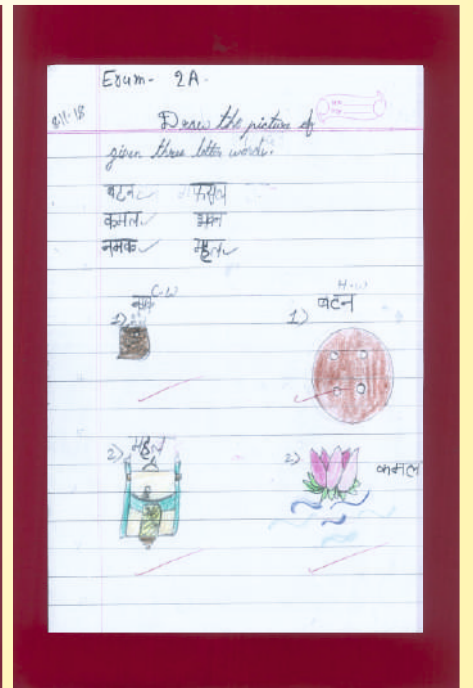 Erum- 2A.
8-11-18
Draw the picture of
given three letter words.
बटन फसल
कमल भवन
नमक महल
C-W H-W
नमक बटन
1) 1)
2) महल 2) कमल